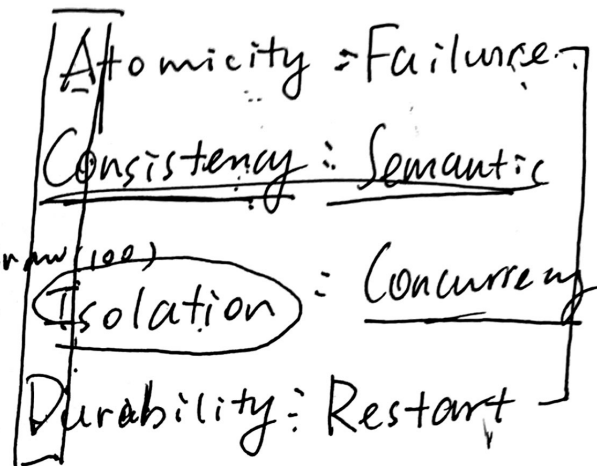 Atomicity : Failure
Consistency : Semantic
(100)
Isolation : Concurrency
Durability : Restart